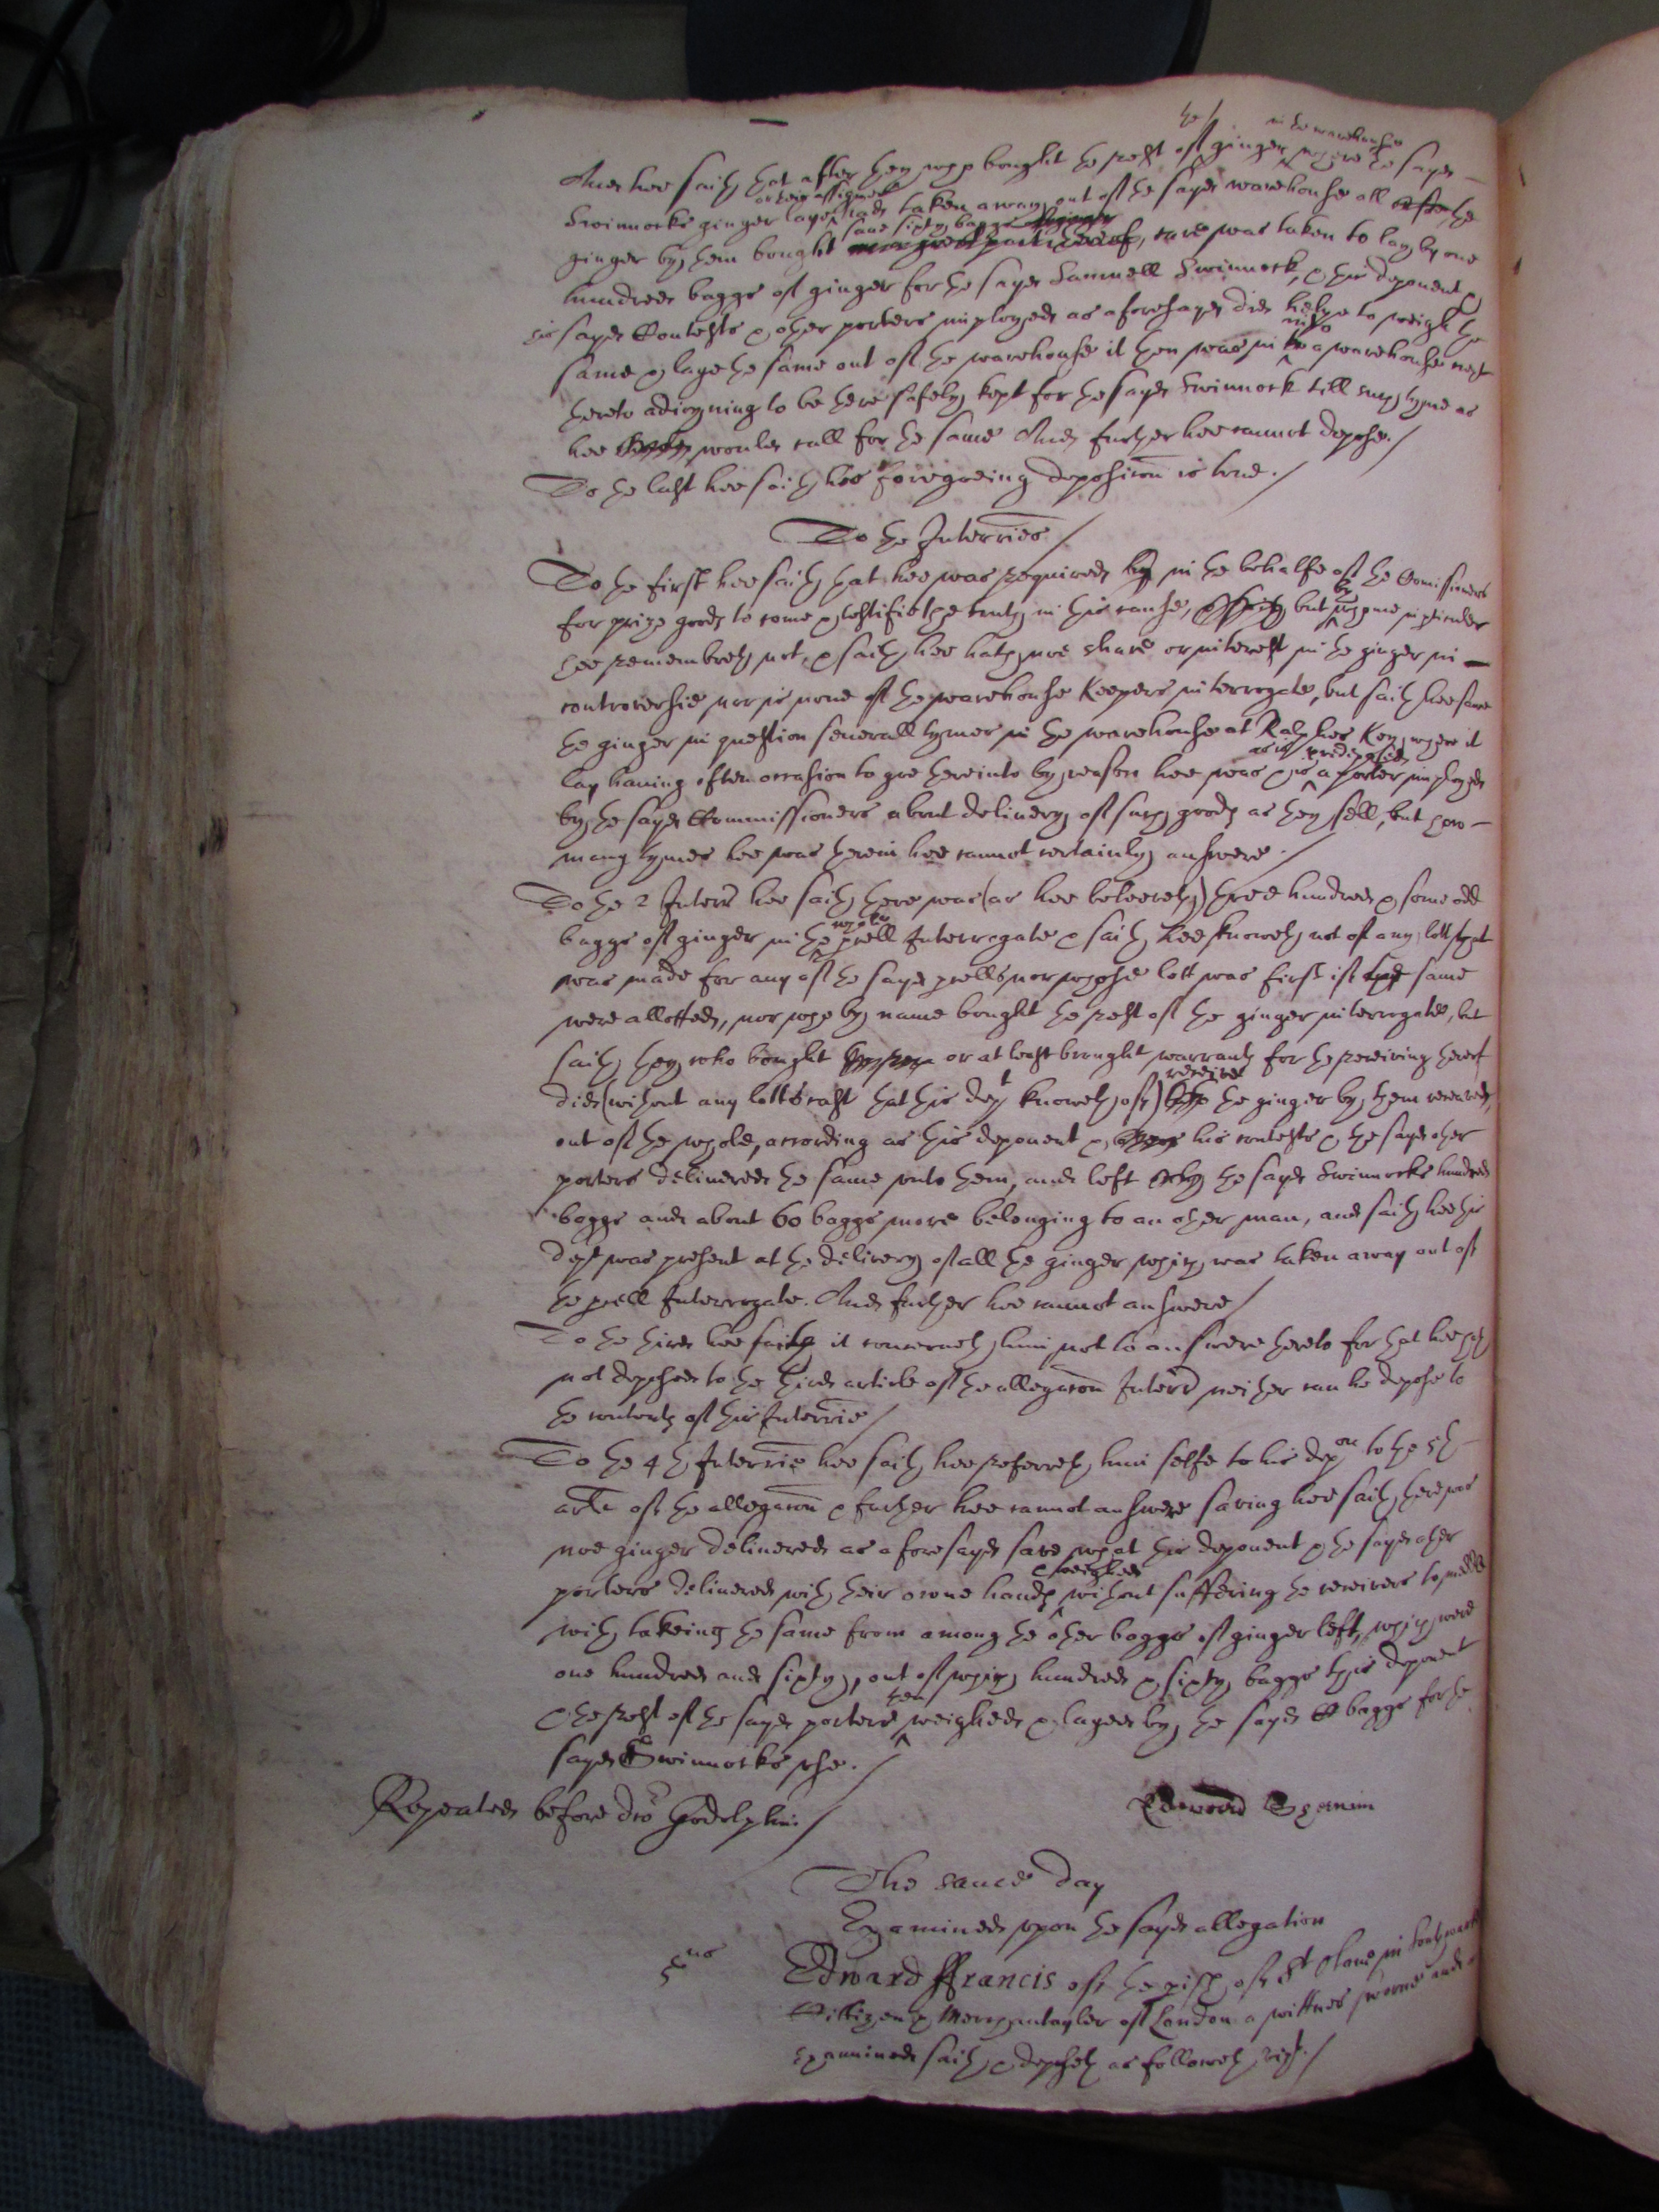 And hee saith that after they who bought the rest of the ginger in the warehouse where the sayd
Swinnocks ginger laye or their assignes had taken away out of the sayd warehouse all the
ginger by them bought save sixty baggs, care was taken to lay by one
hundred baggs of ginger for the sayd Samuell Swinnock, & this deponent &
his sayd Contests & other porters imployed as aforesayd did helpe to weigh the
same & laye the same out of the warehouse it then was in into a warehouse next
thereto adioyning to be there safely kept for the sayd Swinnock till such tyme as
hee would call for the same And further hee cannot depose./
To the last hee saith his foregoeing deposicon is true./
To the Interries/
To the first hee saith that hee was required in the behalfe of the Comissioners
for prize goods to come & testifie the truth in this cause, but by whome in perticuler
hee remembreth not, & saith hee hath noe share or interest in the ginger in
controversie nor is none of the warehouse Keepers interrogate, but saith hee sawe
the ginger in question severall tymes in the warehouse at Ralphes Key where it
lay having often occasion to goe thereinto by reason hee was & is as is predeposed a porter imployed
by the sayd Commissioners about delivery of such goods as they sell, but how
many tymes hee was therein hee cannot certainly answere./
To the 2 Interr hee saith there was (as hee beleeveth) three hundred & some odd
baggs of ginger in the whole prell Interrogate & saith hee knoweth not of any lott that
was made for any of the sayd prells nor whose lott was first if the same
were allotted, nor who by name bought the rest of the ginger interrogate, but
saith they who bought or at least brought warrants for the receiving thereof
did (without any lotts cast that this dept knoweth of) receive the ginger by them received,
out of the whole, according as this deponent & his contests & the sayd other
porters delivered the same unto them, and left the sayd Swinnocks hundred
baggs and about 60 baggs more belonging to an other man, and saith hee this
dept was present at the delivery of all the ginger which was taken away out of
the prell Interrogate. And further hee cannot answere/
To the third hee saith it concerneth him not to answere thereto for that hee hath
not deposed to the third article of the allegacon Interrd neither can he depose to
the contents of this Interrie/
To the 4th Interrie hee saith hee referreth him selfe to his depon to the 5th
arte of the allegacon & further hee cannot answere saving hee saith there was
noe ginger delivered as aforesayd save what this deponent & the sayd other
porters delivered with their owne hands & weighed without suffering the receivers to medle
with takeing the same from among the other baggs of ginger left, which were
one hundred and sixty, out of which hundred & sixty baggs this deponent
& the rest of the sayd porters then weighed & layed by the sayd C baggs for the
sayd Swinnocks use./
Repeated before dr Godolphin./
Edward
The same day
Examined upon the sayd allegation
5us
Edward Francis of the pish of St Olave in Southwark
Cittizen & Merchantayler of London a wittnes sworne and
examined saith & deposeth as followeth vizt./